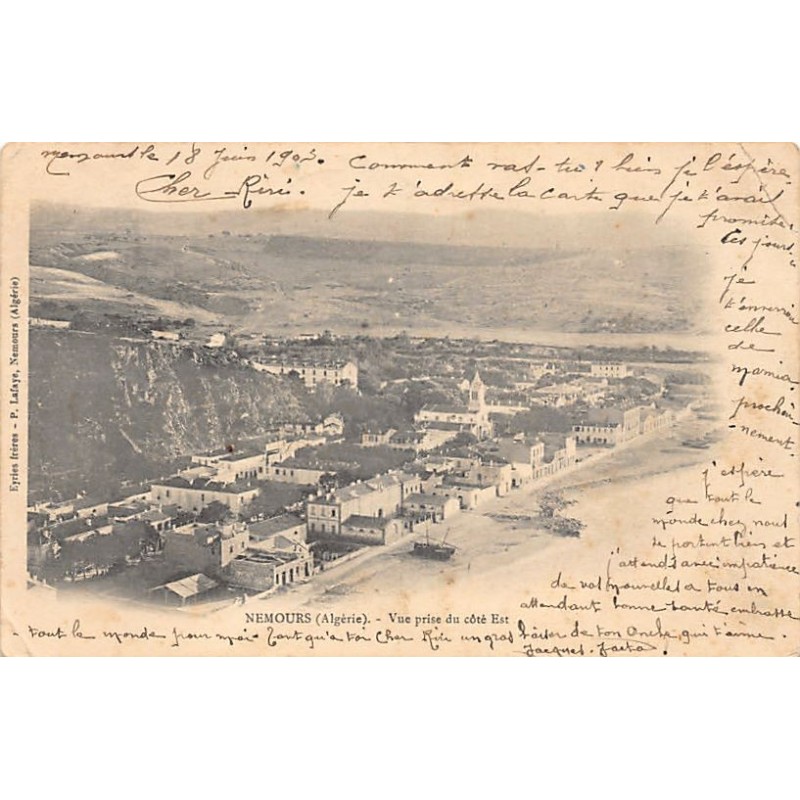 le 18 Juin 1903. Comment vas-tu? bien je l'espère.
Cher Riri. je t'adresse la carte que je t'avais
promise.
Ces jours
je
t'enverrai
celle
de
marnia
prochai-
nement.
j'espère
que tout le
monde chez nous
se portent bien et
j'attends avec impatience
de vos nouvelles a tous en
attendant bonne santé embrasse
tout le monde pour moi Tant qu'a toi Cher Riri un gros baiser de ton Oncle qui t'aime.
Jacques.
Eyries frères - P. Lafaye, Nemours (Algérie)
NEMOURS (Algérie). - Vue prise du côté Est